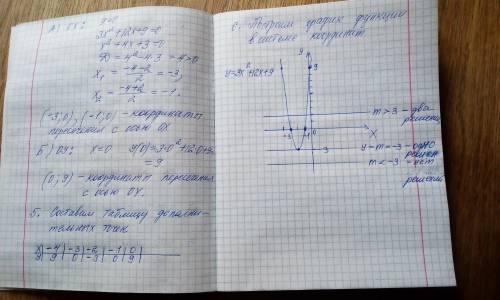 А) OX: y=0
3x²+12x+9=0
x²+4x+3=0
D=4²-4·3=4>0
x₁=(-4-2)/2=-3,
x₂=(-4+2)/2=-1.
(-3;0), (-1;0) - координаты
пересечения с осью OX.
Б) OY: x=0 y(0)=3·0²+12·0+9=
=9
(0;9) - координаты пересечения
с осью OY.
5. Составим таблицу дополни-
тельных точек
x -4 -3 -2 -1 0
y 9 0 -3 0 9
6. Построим график функции
в системе координат
y
9
y=3x²+12x+9
m>3 - два
решения
-3 -1 0 X
-3 y=m=-3 - одно
решен
m<-3 - нет
решений